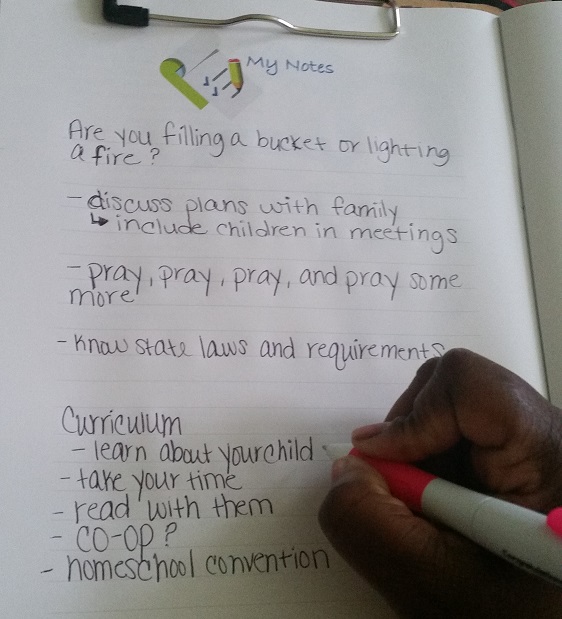 My Notes
Are you filling a bucket or lighting
a fire?
- discuss plans with family
↳ include children in meetings
- pray, pray, pray, and pray some
more
- know state laws and requirements
Curriculum
- learn about your child
- take your time
- read with them
- CO-OP?
- homeschool convention